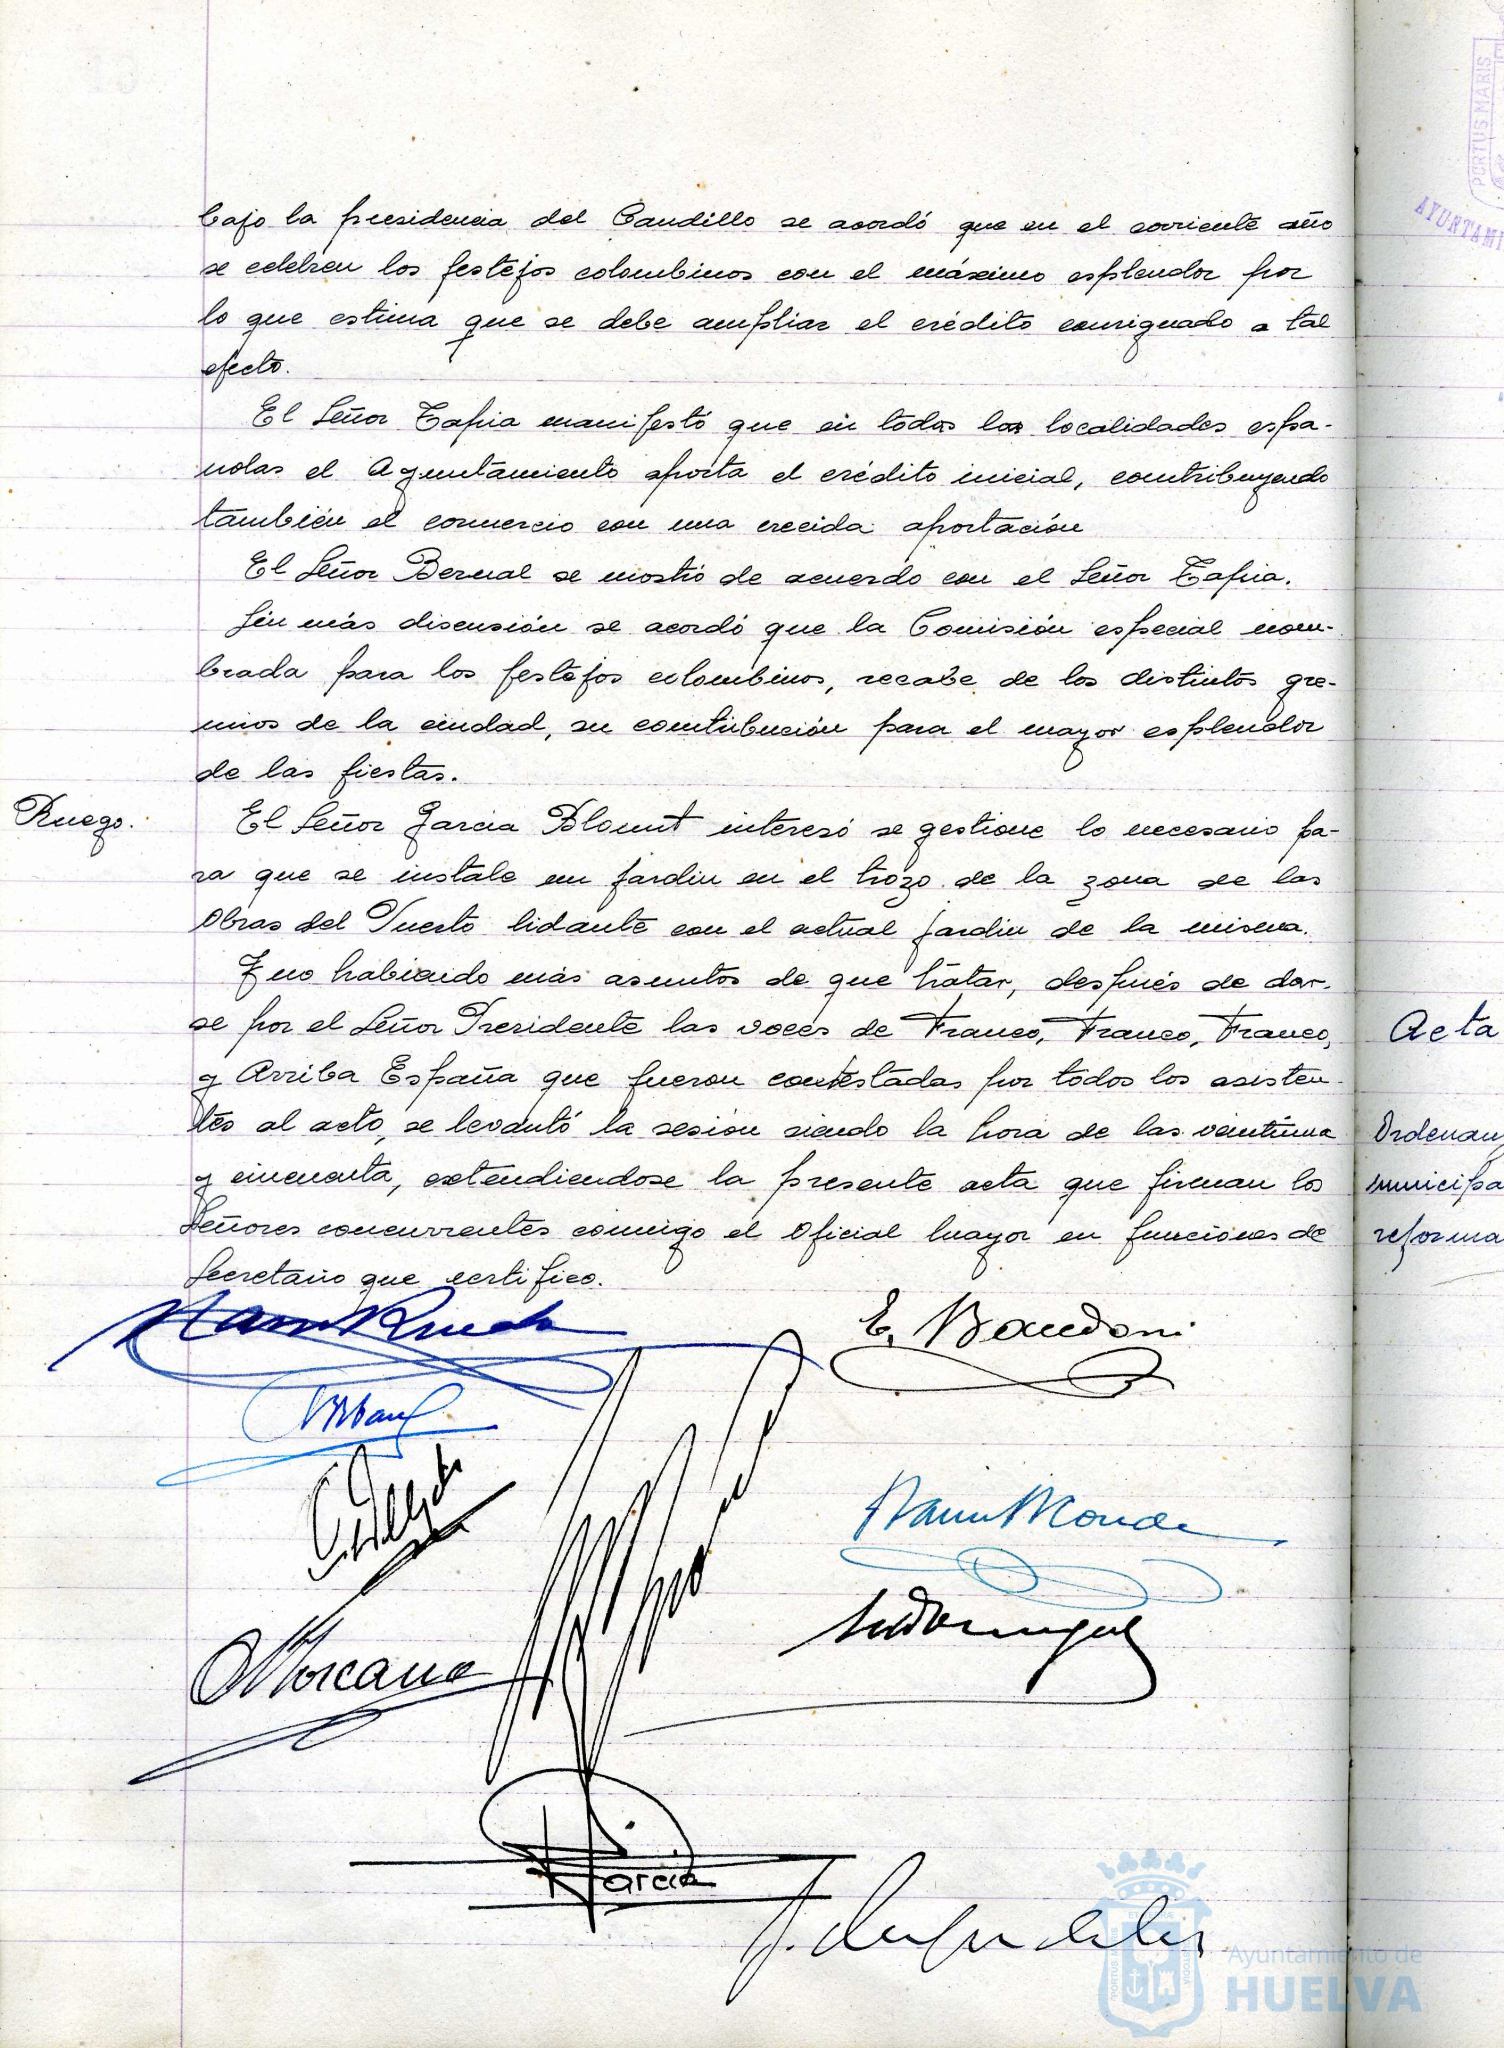 bajo la presidencia del Caudillo se acordó que en el corriente año
se celebren los festejos colombinos con el máximo esplendor por
lo que estima que se debe ampliar el crédito consignado a tal
efecto.
El Señor Tapia manifestó que en todas las localidades espa-
ñolas el Ayuntamiento aporta el crédito inicial, contribuyendo
también el comercio con una crecida aportación
El Señor Bernal se mostró de acuerdo con el Señor Tapia.
Sin más discusión se acordó que la Comisión especial nom-
brada para los festejos colombinos, recabe de los distintos gre-
mios de la ciudad, su contribución para el mayor esplendor
de las fiestas.
Ruego.
El Señor Garcia Blount interesó se gestione lo necesario pa-
ra que se instale un jardin en el trozo de la zona de las
Obras del Puerto lidante con el actual jardin de la misma.
Y no habiendo más asuntos de que tratar, después de dar-
se por el Señor Presidente las voces de Franco, Franco, Franco,
y Arriba España que fueron contestadas por todos los asisten-
tes al acto, se levantó la sesión siendo la hora de las veintiuna
y cincuenta, extendiendose la presente acta que firman los
Señores concurrentes conmigo el Oficial Mayor en funciones de
Secretario que certifico.
E. Baudoni
Morcano
Garcia
PORTUS MARIS
AYUNTAMI
Acta
Ordenan
municipa
reforma
Ayuntamiento de
HUELVA